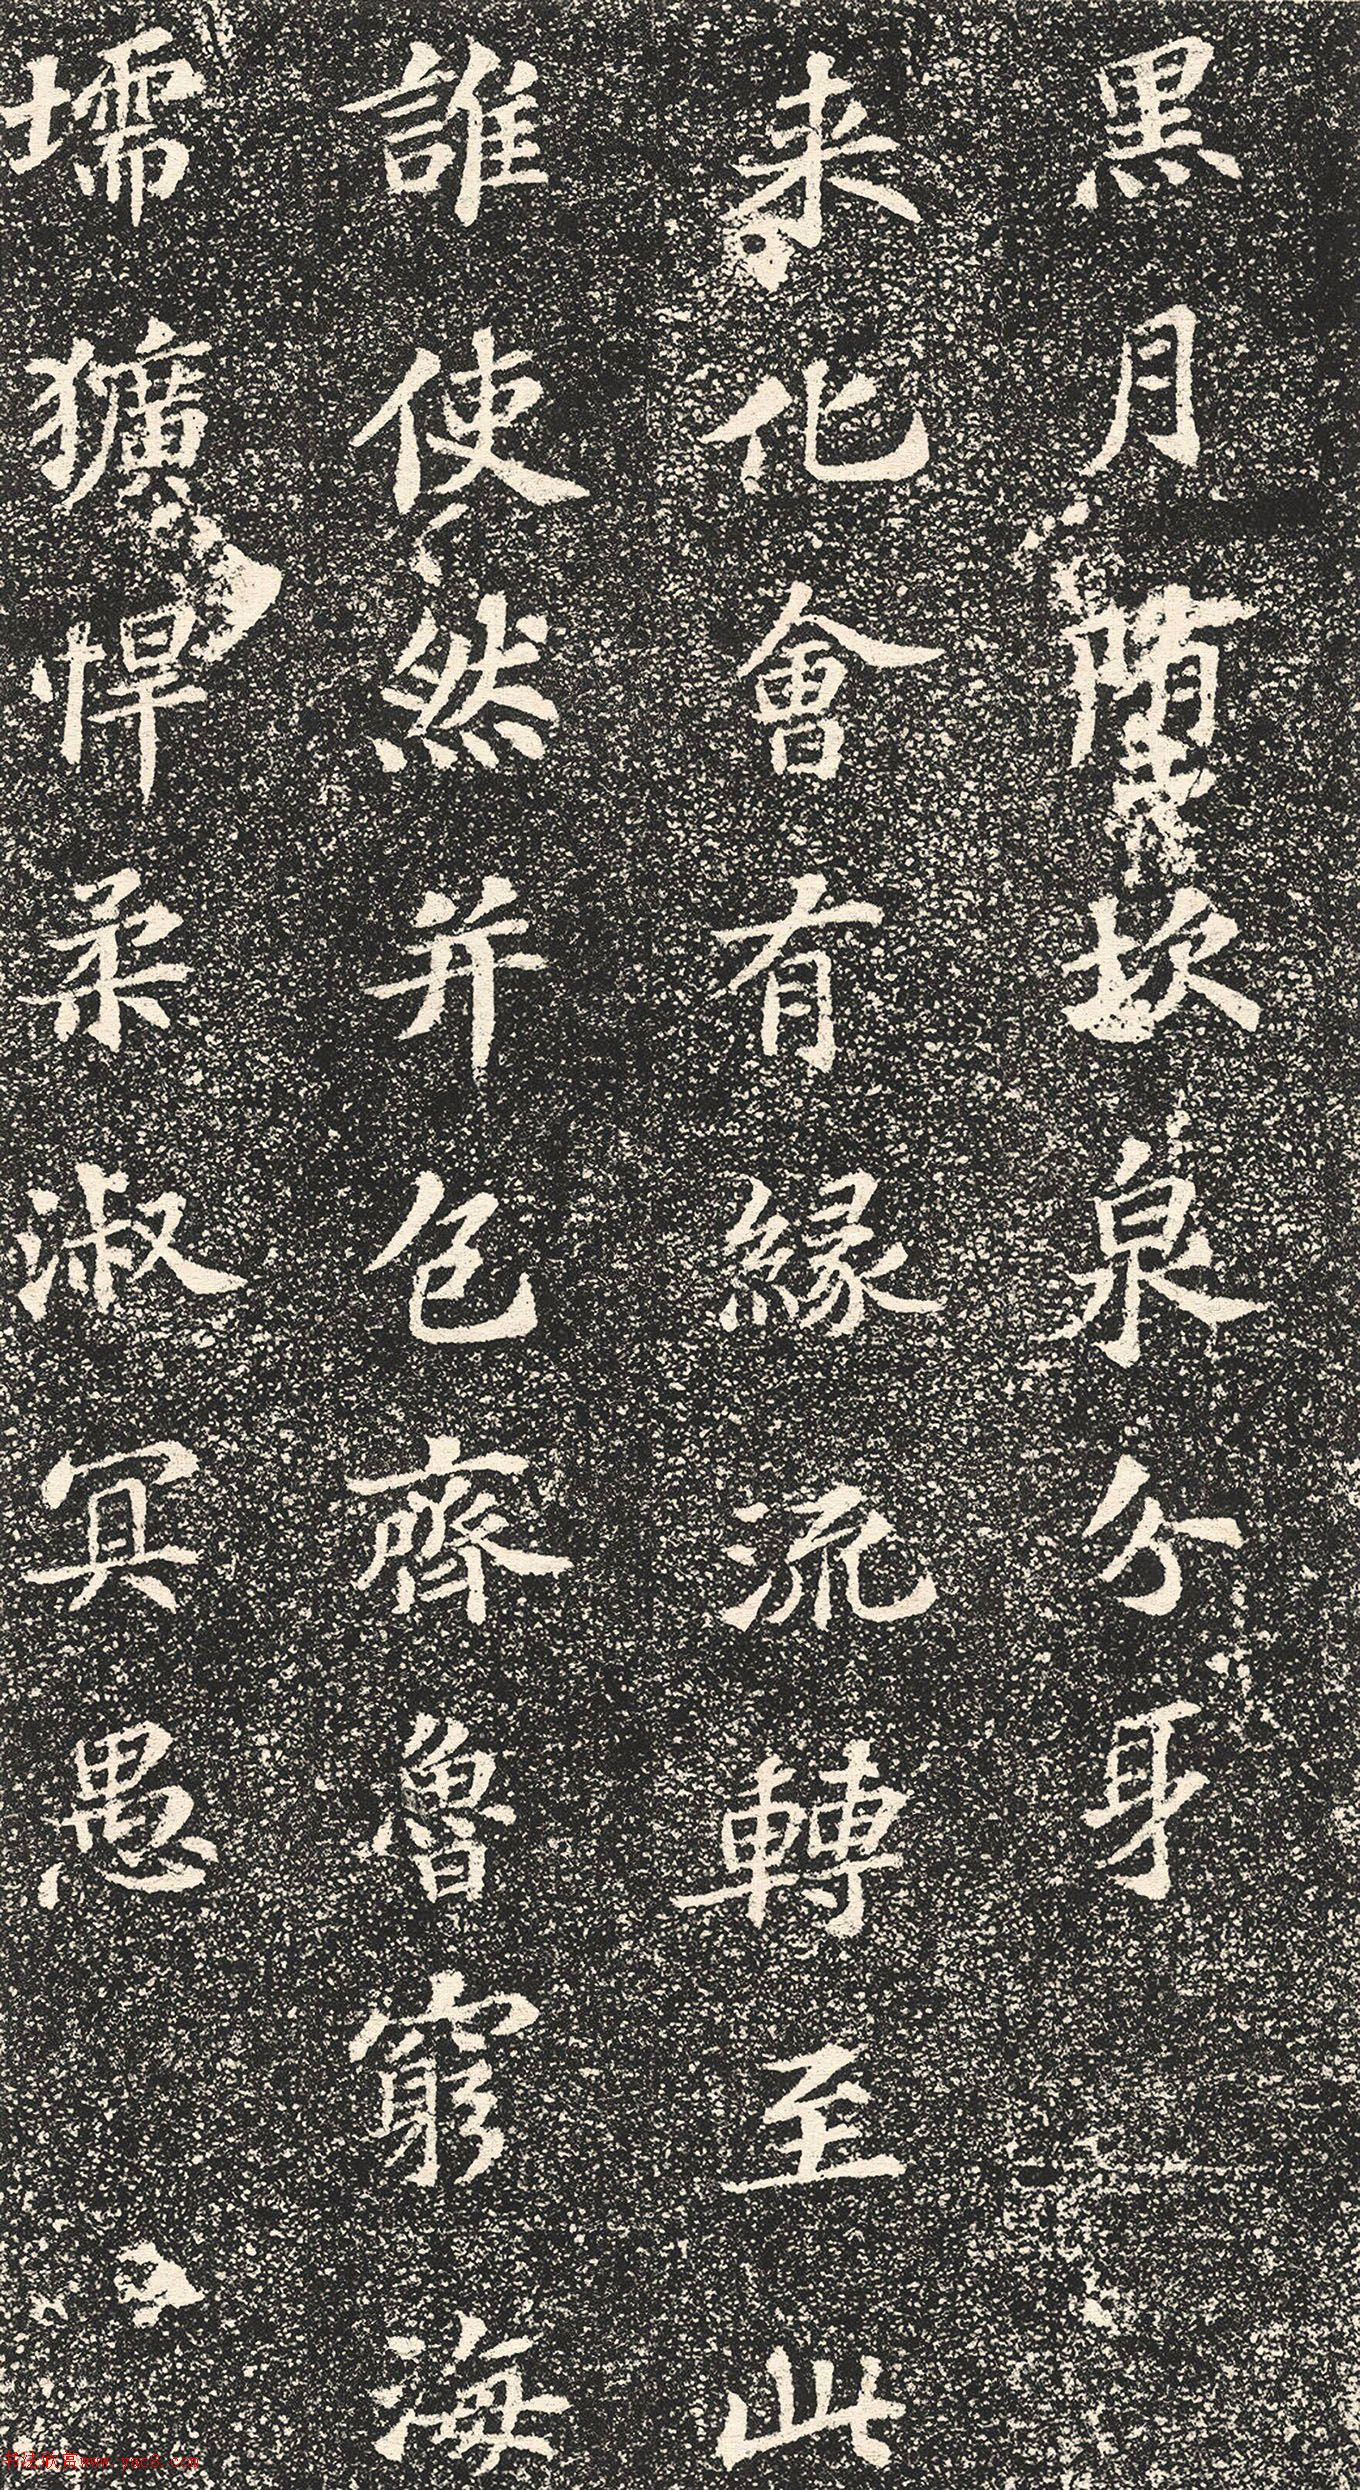 黑月墮坎泉分身
来化會有緣流轉至此
誰使然并包齊魯窮海
壖獷悍柔淑冥愚
书法欣赏www.yac8.com